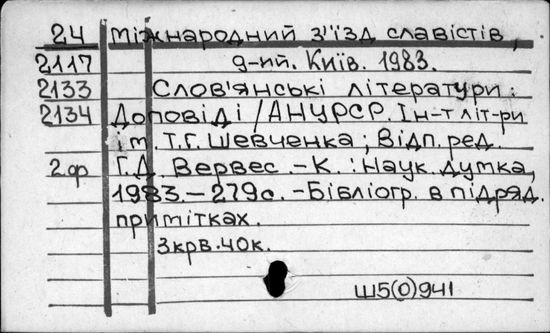 24 Міжнародний з'їзд славістів,
2117 9-ий. Київ. 1983.
2133 Слов'янські літератури:
2134 Доповіді /АНУРСР. Ін-т літ-ри
ім. Т.Г. Шевченка; Відп. ред.
2 ф Г.Д. Вервес. - К.: Наук. думка,
1983. - 279с. - Бібліогр. в підряд.
примітках.
3крв. 40к.
Ш5(0)941